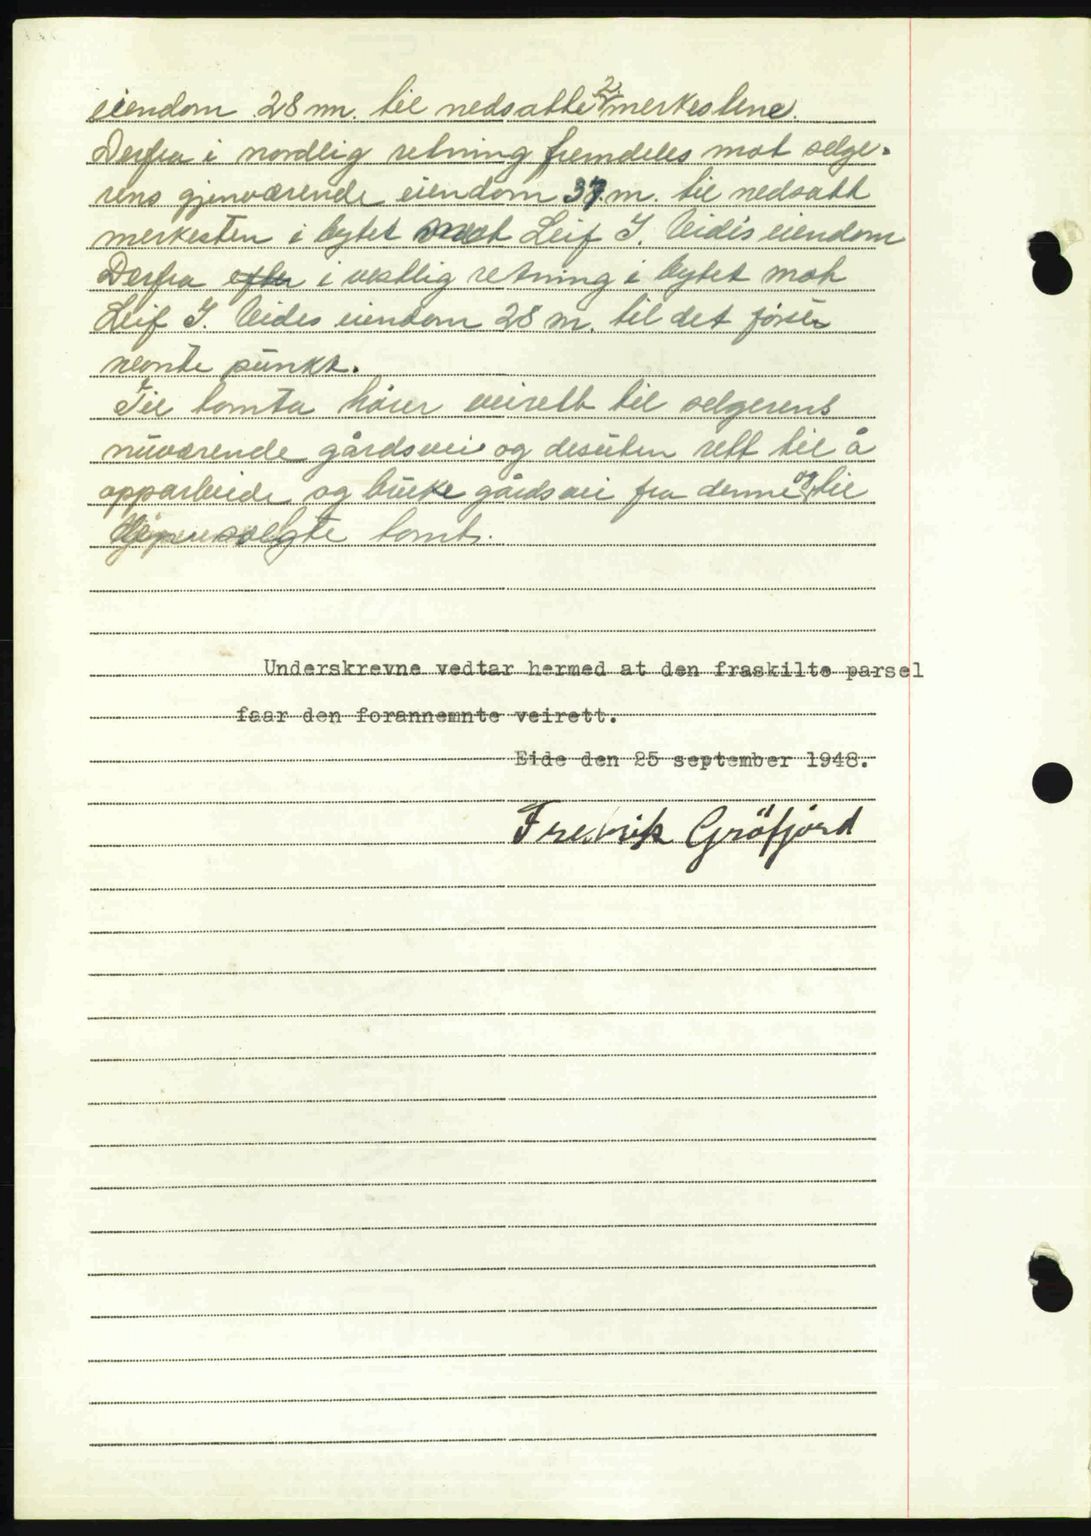 eiendom 28 m. til nedsatte 2 merkestene.
Derfra i nordlig retning fremdeles mot selge-
rens gjenværende eiendom 37 m. til nedsatt
merkesten i bytet mot Leif J. Eides eiendom
Derfra efter i vestlig retning i bytet mot
Leif J. Eides eiendom 28 m. til det først
nevnte punkt.
Til tomta hører veirett til selgerens
nuværende gårdsvei og desuten rett til å
opparbeide og bruke gårdsvei fra denne og til
solgte tomt.
Underskrevne vedtar hermed at den fraskilte parsel
faar den forannemnte veirett.
Eide den 25 september 1948.
Fredrik Gröfjörd